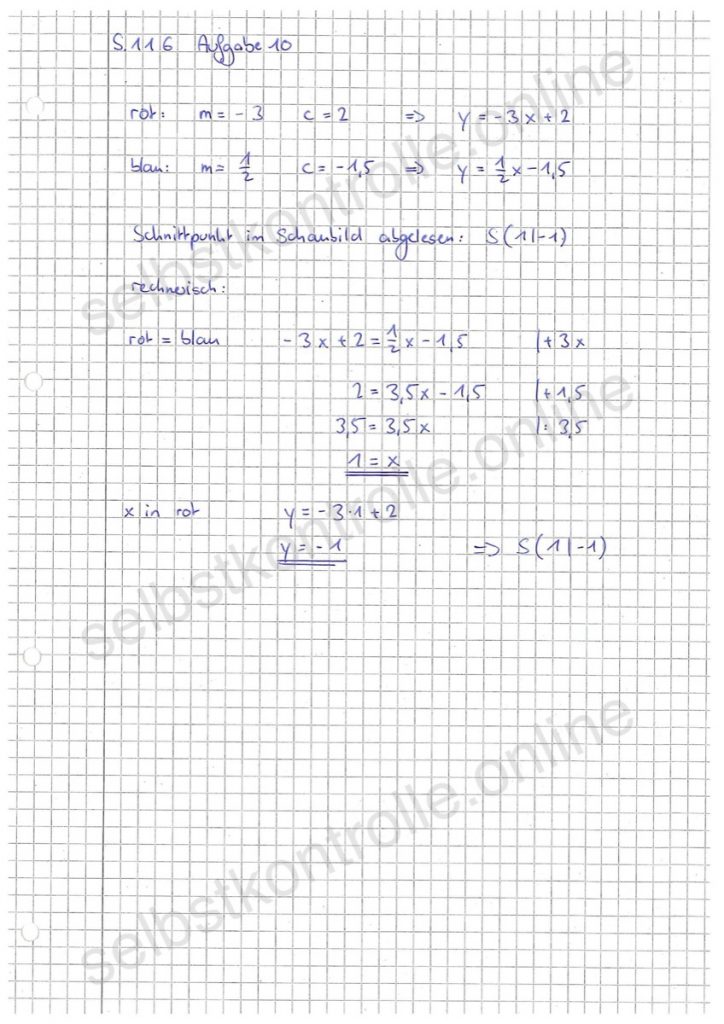 S. 116 Aufgabe 10
rot: m = -3 c = 2 => y = -3x + 2
blau: m = 1/2 c = -1,5 => y = 1/2 x - 1,5
Schnittpunkt im Schaubild abgelesen: S(1|-1)
rechnerisch:
rot = blau -3x + 2 = 1/2 x - 1,5 |+3x
2 = 3,5x - 1,5 |+1,5
3,5 = 3,5x |: 3,5
1 = x
x in rot y = -3·1 + 2
y = -1 => S(1|-1)
selbstkontrolle.online
selbstkontrolle.online
selbstkontrolle.online